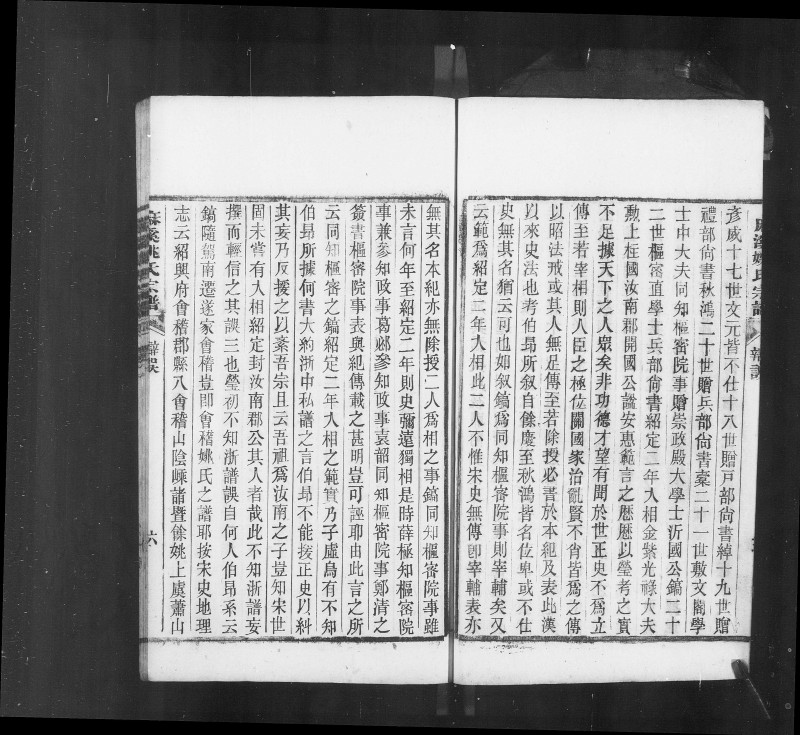 姚氏宗譜
彥威十七世文元皆不仕十八世贈戸部尙書綽十九世贈
禮部尙書秋鴻二十世贈兵部尙書橐二十一世敷文閣學
士中大夫同知樞密院事贈崇政殿大學士沂國公鎬二十
二世樞密直學士兵部尙書紹定二年入相金紫光祿大夫
勳上柱國汝南郡開國公諡安惠範言之厯厯以瑩考之實
不足據天下之人衆矣非功德才望有聞於世正史不爲立
傳至若宰相則人臣之極位關國家治亂賢不肖皆爲之傳
以昭法戒或其人無足傳至若除授必書於本紀及表此漢
以來史法也考伯昻所叙自餘慶至秋鴻皆名位卑或不仕
史無其名猶云可也如叙鎬爲同知樞密院事則宰輔矣又
云範爲紹定二年入相此二人不惟宋史無傳卽宰輔表亦
無其名本紀亦無除授二人爲相之事鎬同知樞密院事雖
未言何年至紹定二年則史彌遠獨相是時薛極知樞密院
事兼參知政事葛邲參知政事袁韶同知樞密院事鄭清之
簽書樞密院事表與紀傳載之甚明豈可誣耶由此言之所
云同知樞密之鎬紹定二年入相之範實乃子虛烏有不知
伯昻所據何書大約浙中私譜之言伯昻不能援正史以糾
其妄乃反援之以紊吾宗且云吾祖爲汝南之子豈知宋世
固未嘗有入相紹定封汝南郡公其人者哉此不知浙譜妄
撰而輕信之其誤三也瑩初不知浙譜誤自何人伯昻系云
鎬隨駕南遷遂家會稽豈即會稽姚氏之譜耶按宋史地理
志云紹興府會稽郡縣八會稽山陰嵊諸暨餘姚上虞蕭山
麻溪姚氏宗譜
辯誤
六